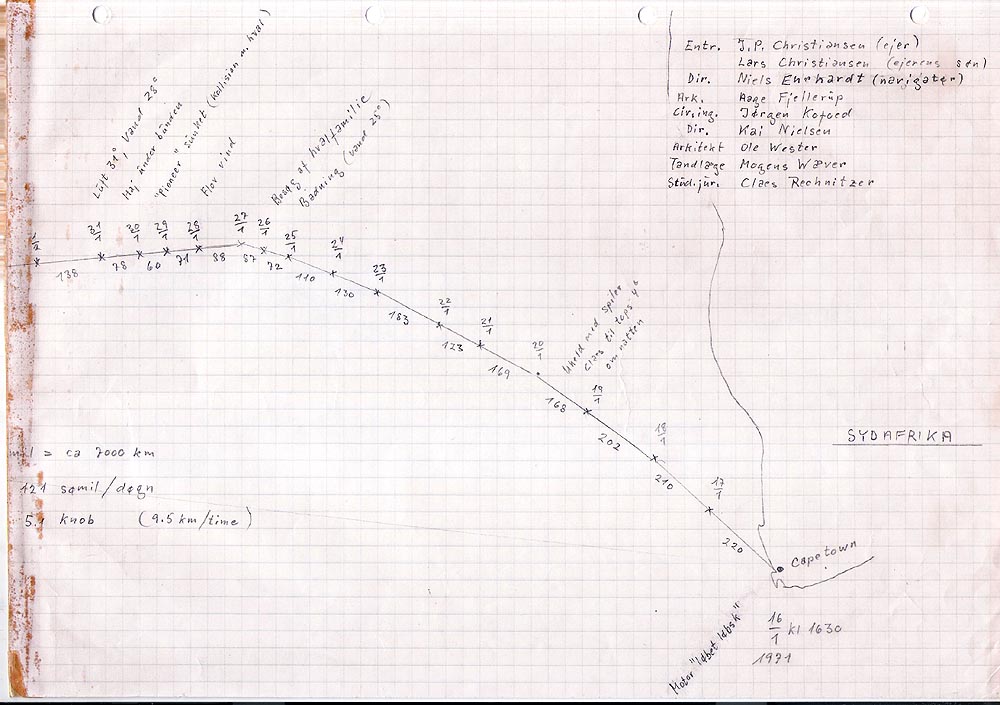 Entr. J.P. Christiansen (ejer)
Lars Christiansen (ejerens søn)
Dir. Niels Enrhardt (navigatør)
Ark. Aage Fjellerup
Civ.ing. Jørgen Kofoed
Dir. Kaj Nielsen
Arkitekt Ole Wester
Tandlæge Mogens Wæver
Stud.jur. Claes Rechnitzer
Luft 31°, vand 28°
Haj under bunden
"Pioneer" sunket (kollision m. hval)
Flov vind
Besøg af hvalfamilie
Badning (vand 25°)
31/1 30/1 29/1 28/1 27/1 26/1 25/1 24/1 23/1 22/1 21/1 20/1 19/1 18/1 17/1
138 78 60 71 88 87 72 110 130 183 123 169 168 202 210 220
Uheld med spiler
Claes til tops
om natten
SYDAFRIKA
= ca 7000 km
121 sømil/døgn
5.1 knob (9.5 km/time)
Capetown
Motor "løbet løbsk"
16/1 kl 1630
1971